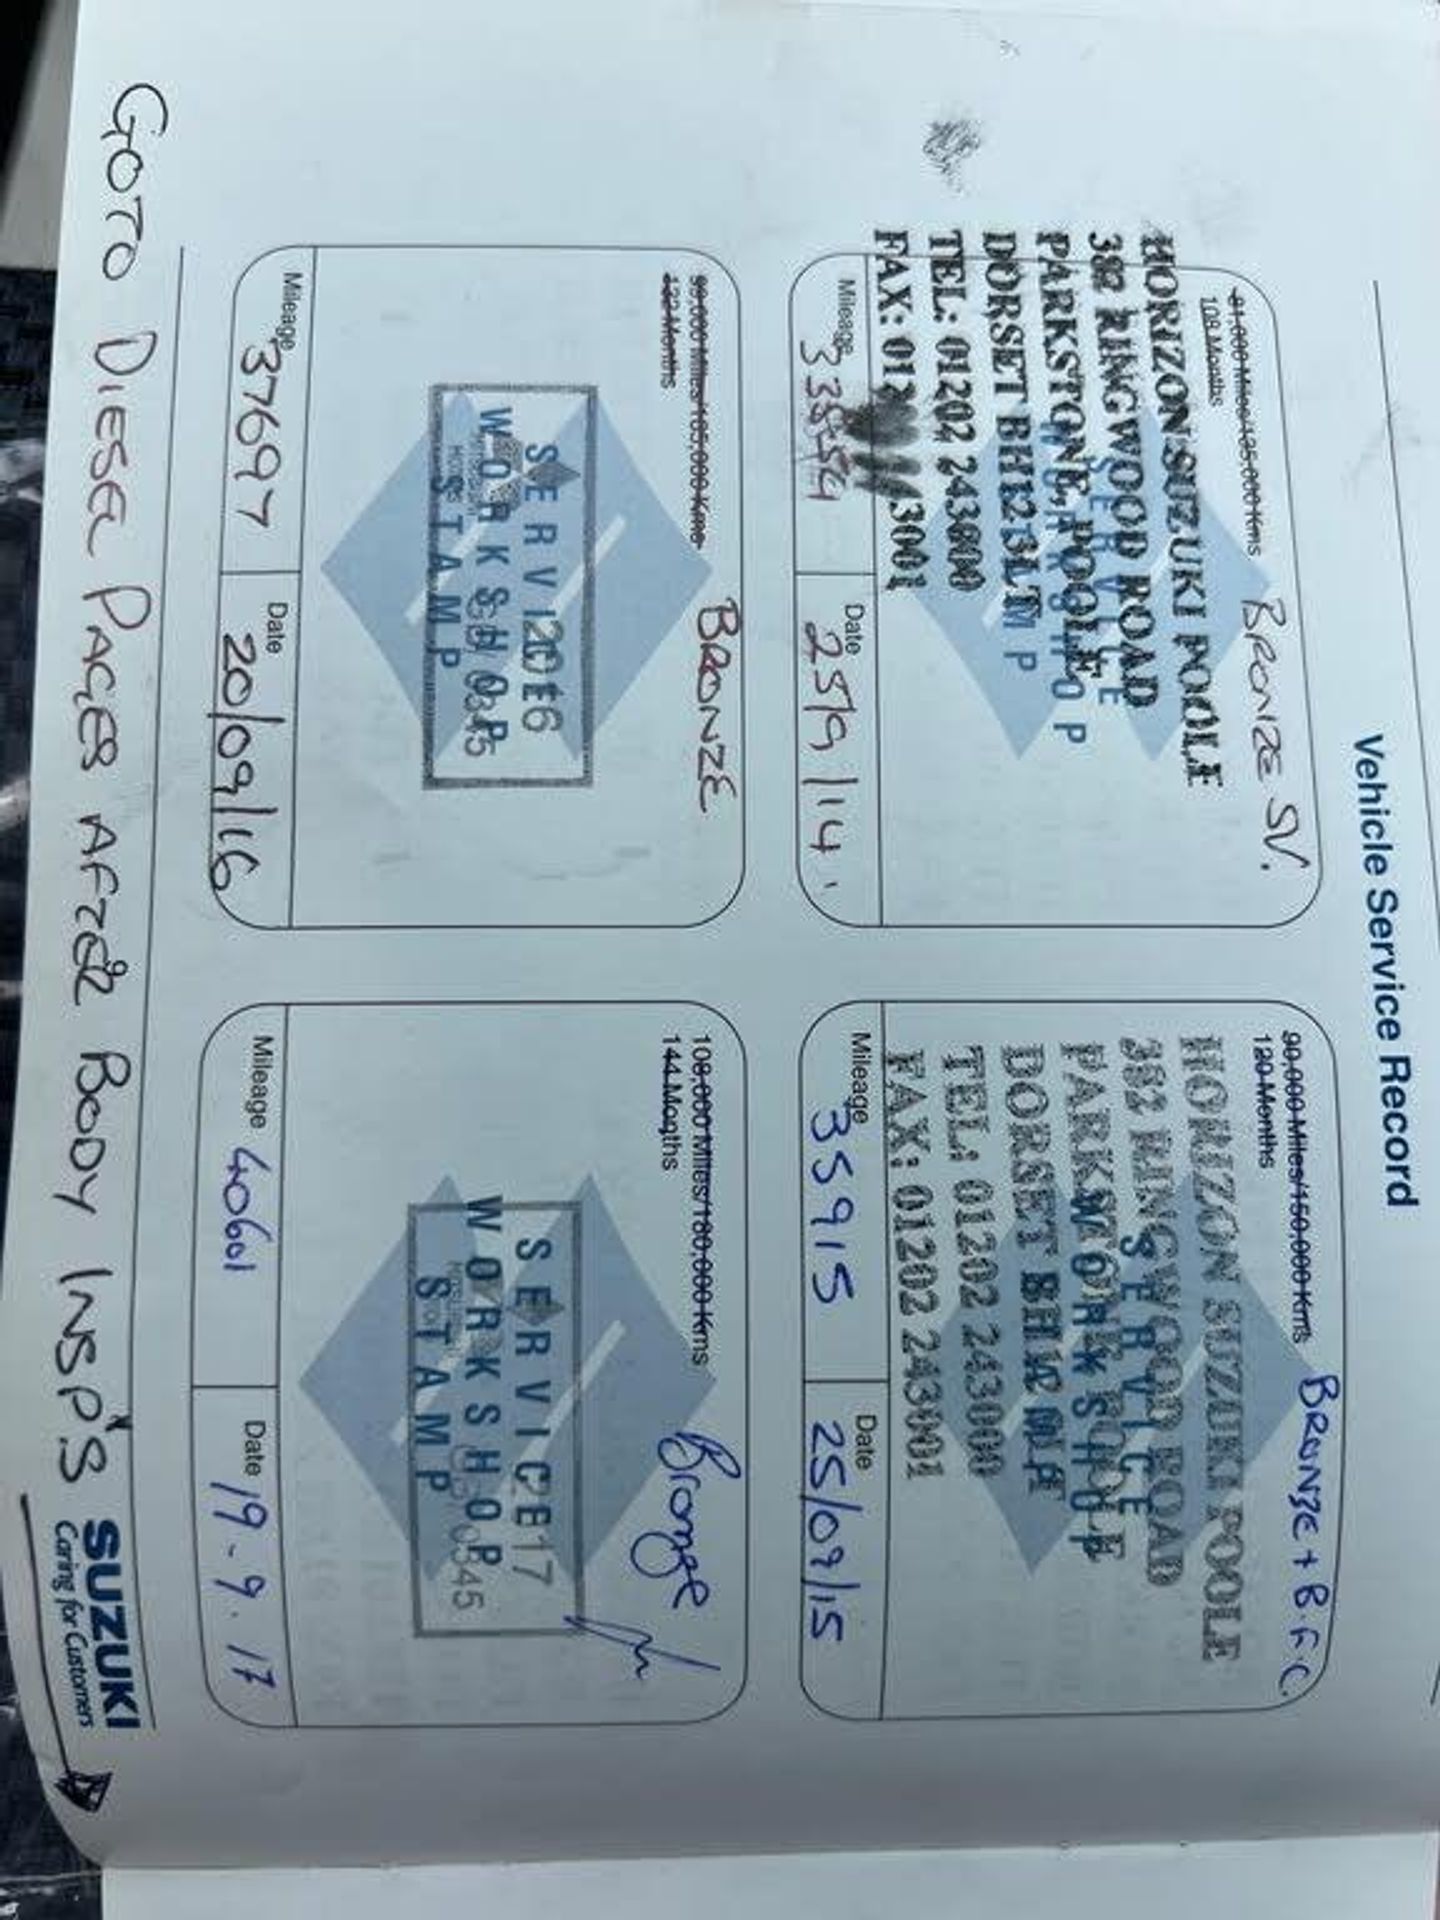 Vehicle Service Record
81,000 Miles/135,000 Kms
108 Months
BRONZE SV.
HORIZON SUZUKI POOLE
382 RINGWOOD ROAD
PARKSTONE, POOLE
DORSET BH12 3LT
TEL: 01202 243000
SERVICE
WORKSHOP
Mileage
Date
25/9/14
90,000 Miles/150,000 Kms
120 Months
BRONZE + B.F.C.
HORIZON SUZUKI POOLE
382 RINGWOOD ROAD
PARKSTONE, POOLE
DORSET BH12
TEL: 01202 243000
FAX: 01202 243001
SERVICE
WORKSHOP
STAMP
Mileage 35915
Date 25/09/15
99,000 Miles/165,000 Kms
132 Months
BRONZE
SERVICE
WORKSHOP
STAMP
Mileage 37697
Date 20/09/16
108,000 Miles/180,000 Kms
144 Months
Bronze
SERVICE
WORKSHOP
STAMP
Mileage 40601
Date 19.9.17
GOTO DIESEL PAGES AFTER BODY INSP'S
SUZUKI
Caring for Customers